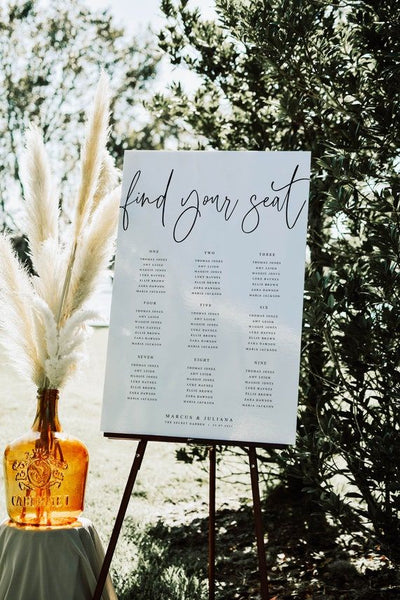 find your seat
ONE
THOMAS JONES
AMY LEIGH
MAGGIE JONES
LUKE HAYNES
ELLIE BROWN
ZARA DAWSON
MARIA JACKSON
TWO
THOMAS JONES
AMY LEIGH
MAGGIE JONES
LUKE HAYNES
ELLIE BROWN
ZARA DAWSON
MARIA JACKSON
THREE
THOMAS JONES
AMY LEIGH
MAGGIE JONES
LUKE HAYNES
ELLIE BROWN
ZARA DAWSON
MARIA JACKSON
FOUR
THOMAS JONES
AMY LEIGH
MAGGIE JONES
LUKE HAYNES
ELLIE BROWN
ZARA DAWSON
MARIA JACKSON
FIVE
THOMAS JONES
AMY LEIGH
MAGGIE JONES
LUKE HAYNES
ELLIE BROWN
ZARA DAWSON
MARIA JACKSON
SIX
THOMAS JONES
AMY LEIGH
MAGGIE JONES
LUKE HAYNES
ELLIE BROWN
ZARA DAWSON
MARIA JACKSON
SEVEN
THOMAS JONES
AMY LEIGH
MAGGIE JONES
LUKE HAYNES
ELLIE BROWN
ZARA DAWSON
MARIA JACKSON
EIGHT
THOMAS JONES
AMY LEIGH
MAGGIE JONES
LUKE HAYNES
ELLIE BROWN
ZARA DAWSON
MARIA JACKSON
NINE
THOMAS JONES
AMY LEIGH
MAGGIE JONES
LUKE HAYNES
ELLIE BROWN
ZARA DAWSON
MARIA JACKSON
MARCUS & JULIANA
THE SECRET GARDEN